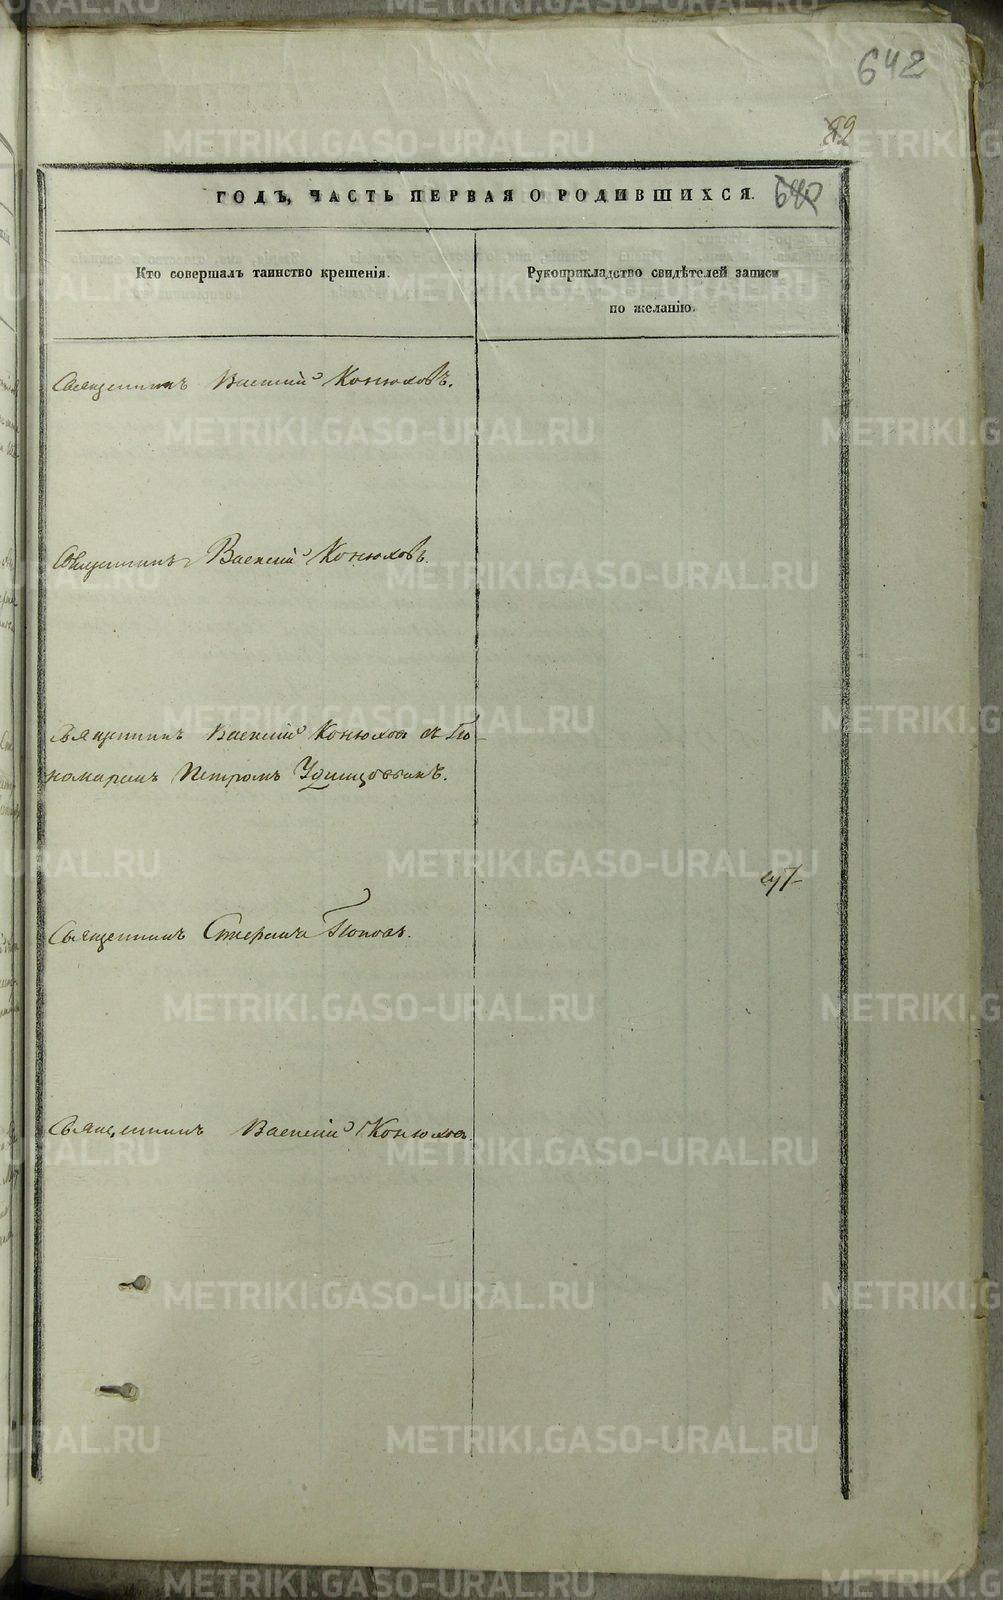 642
82
ГОДЪ, ЧАСТЬ ПЕРВАЯ О РОДИВШИХСЯ. 640
Кто совершалъ таинство крещенія.
Рукоприкладство свидѣтелей записи
по желанію.
Священникъ Василий Конюховъ.
Священникъ Василий Конюховъ.
Священникъ Василий Конюховъ с По-
номаремъ Петромъ
Священникъ Поповъ.
Священникъ Василий Конюховъ
METRIKI.GASO-URAL.RU